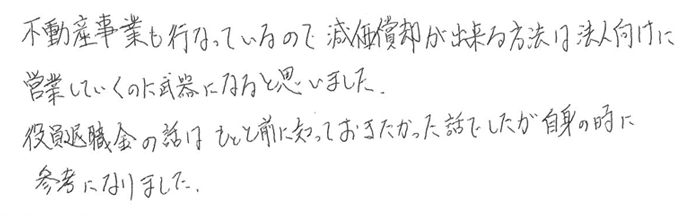 不動産事業も行なっているので減価償却が出来る方法は法人向けに
営業していくのに武器になると思いました.
役員退職金の話はもっと前に知っておきたかった話でしたが自身の時に
参考になりました.